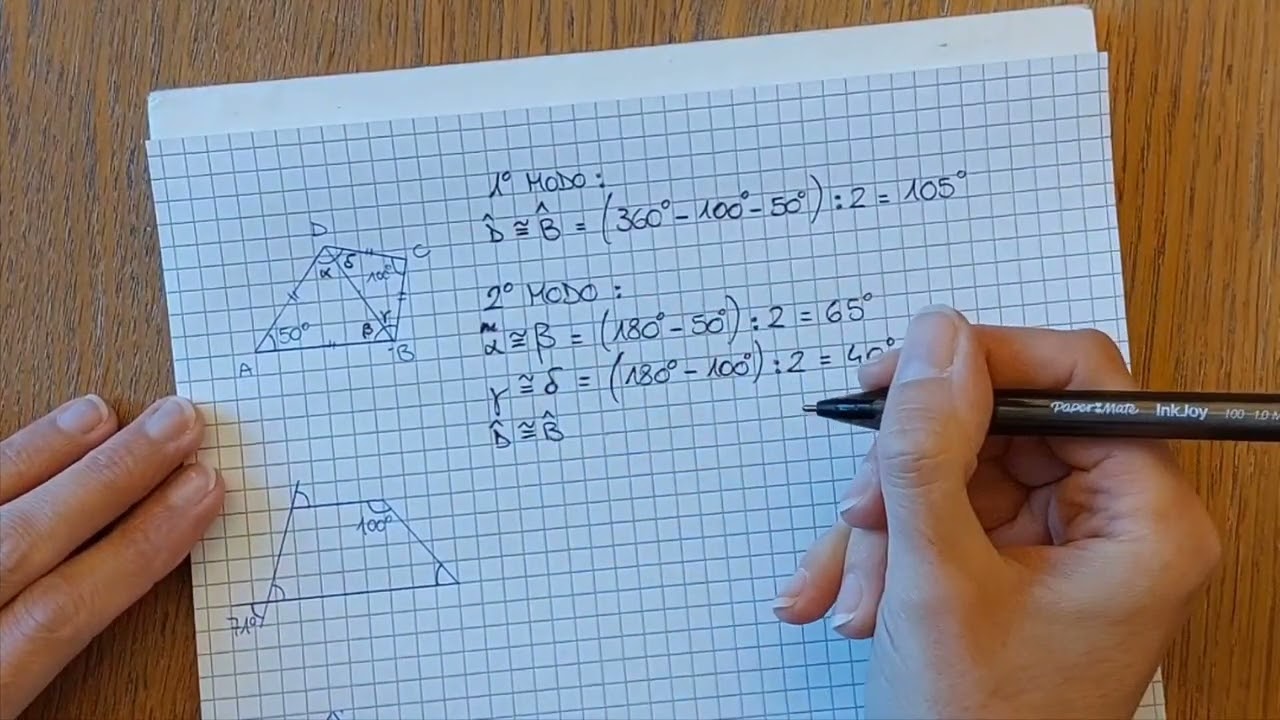 1° MODO:
D̂ ≅ B̂ = (360° - 100° - 50°) : 2 = 105°
2° MODO:
α ≅ β = (180° - 50°) : 2 = 65°
γ ≅ δ = (180° - 100°) : 2 = 40°
D̂ ≅ B̂
D
C
α δ
100°
50°
β γ
A
B
100°
71°
Paper Mate InkJoy 100 1.0 M